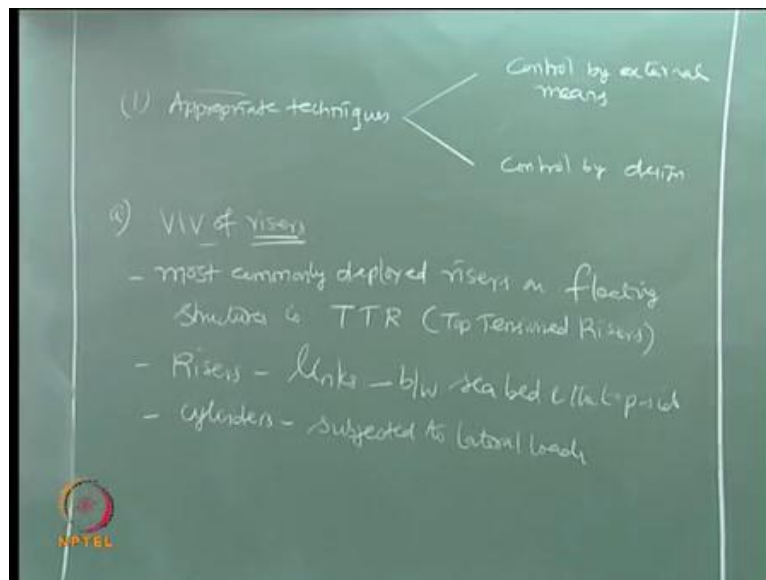 (1) Appropriate techniques
Control by external
means
Control by design
a) VIV of risers
- most commonly deployed risers on floating
structures is TTR (Top Tensioned Risers)
- Risers - links - b/w sea bed & the topside
- cylinders - subjected to lateral loads
NPTEL